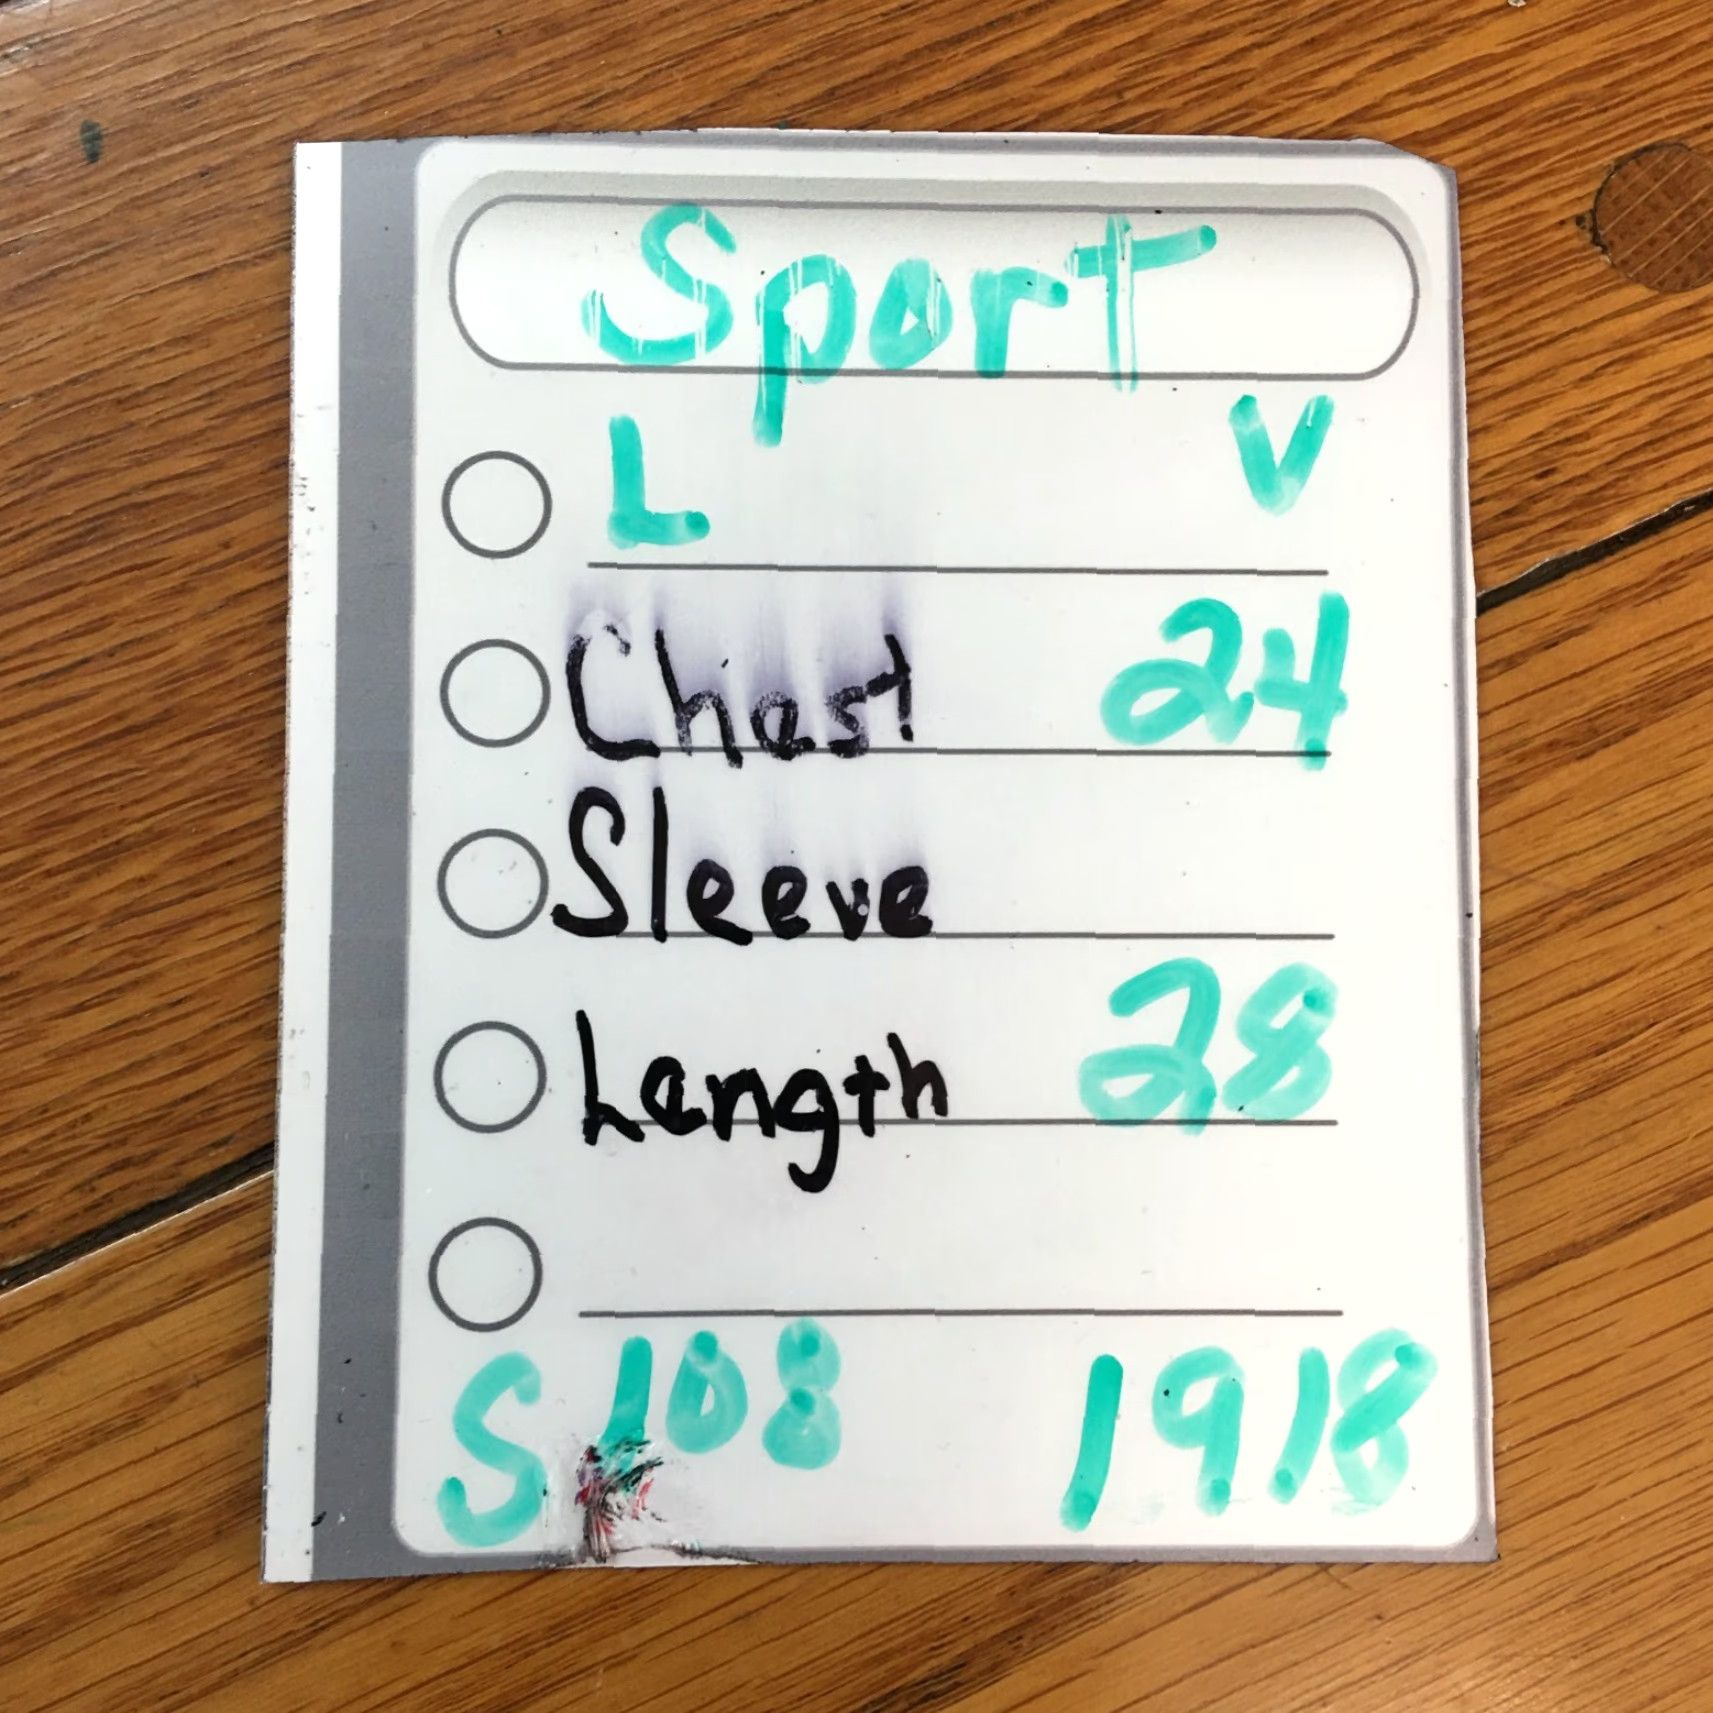 Sport
L V
Chest 24
Sleeve
Length 28
S108 1918